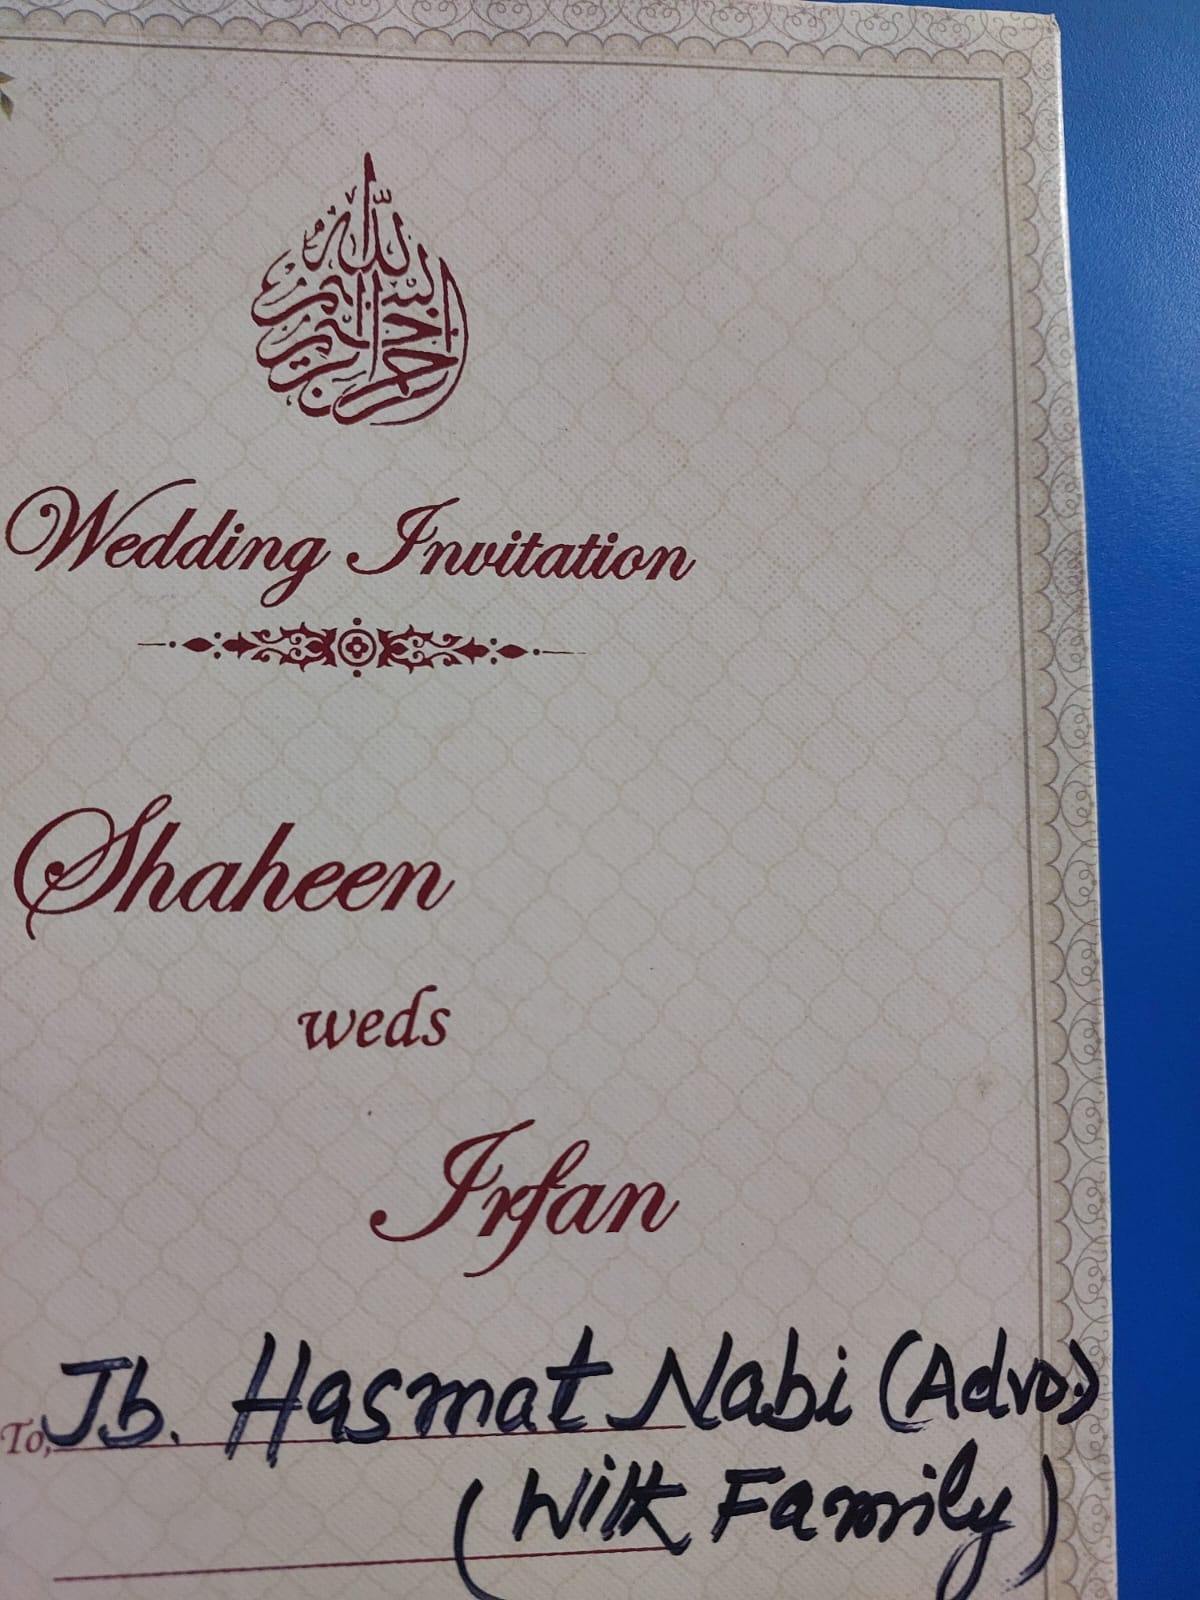 بسم الله الرحمن الرحيم
Wedding Invitation
Shaheen
weds
Irfan
To, Jb. Hasmat Nabi (Advo.)
(With Family)